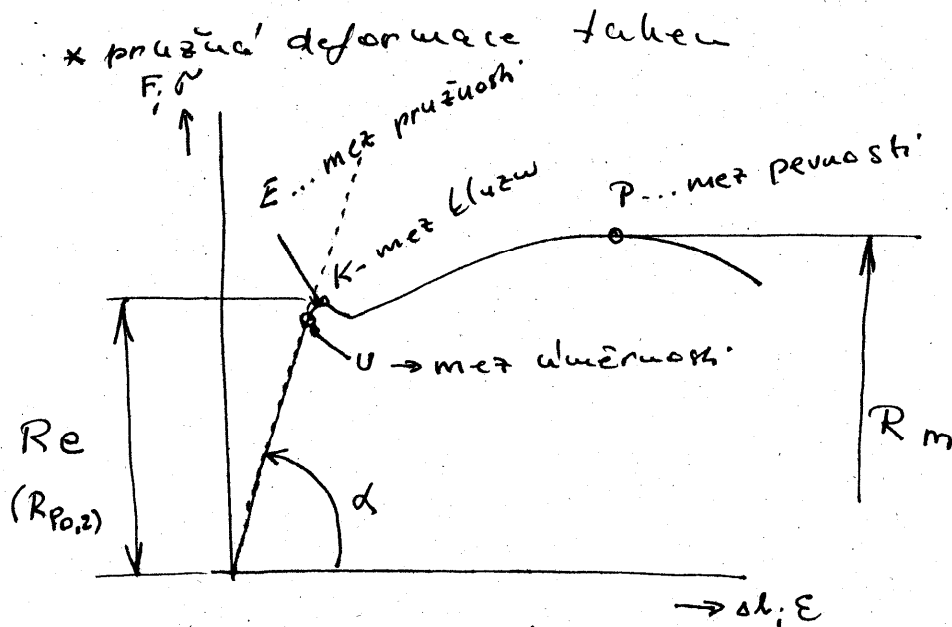 * pružná deformace tahem
F; σ
E ... mez pružnosti
K - mez kluzu
P ... mez pevnosti
U → mez úměrnosti
Re
(Rp0,2)
Rm
α
→ Δl; ε